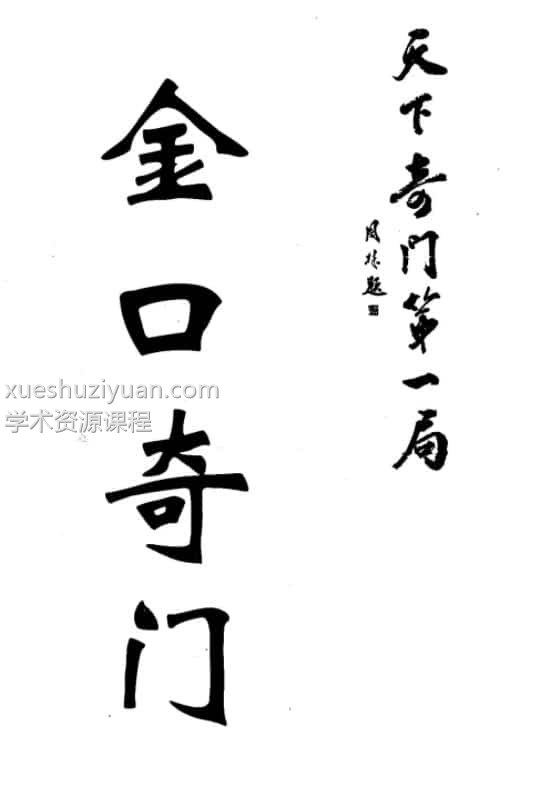 天下奇門第一局
金口奇门
xueshuziyuan.com
学术资源课程